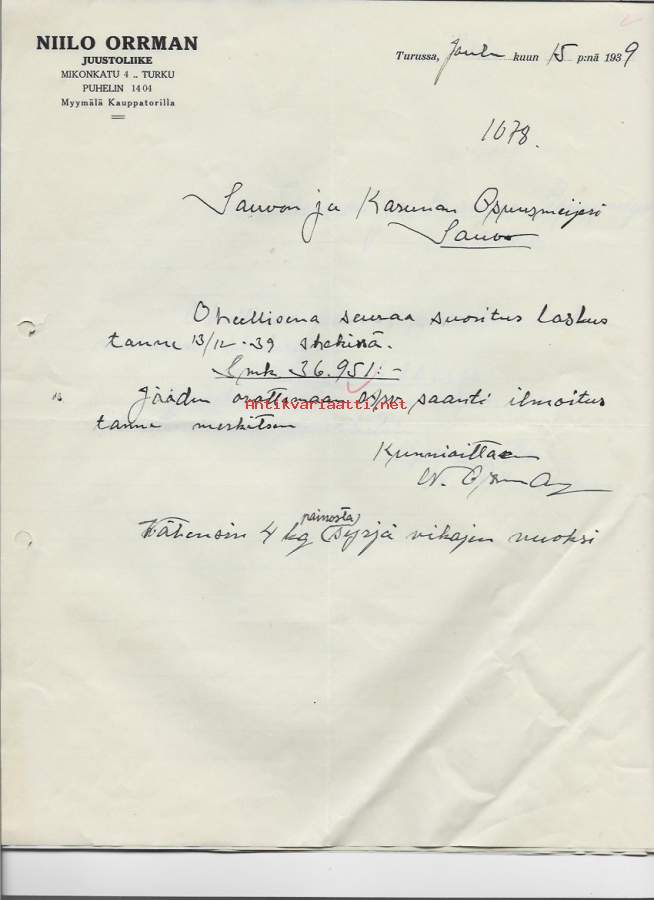 NIILO ORRMAN
JUUSTOLIIKE
MIKONKATU 4 .. TURKU
PUHELIN 14 04
Myymälä Kauppatorilla
Turussa, Joulu kuun 15 p:nä 1939
1078.
Sauvon ja Karunan Osuusmeijeri
Sauvo
Oheellisena seuraa suoritus laskus
tanne 13/12-39 shekissä.
Smk 36.951:-
13
Jäädn saanti ilmoitus
tanne merkitsen
Antikvariaatti.net
Kunnioittaen
N. Orrman
painosta
Vähensin 4 kg syrjä vikojen vuoksi